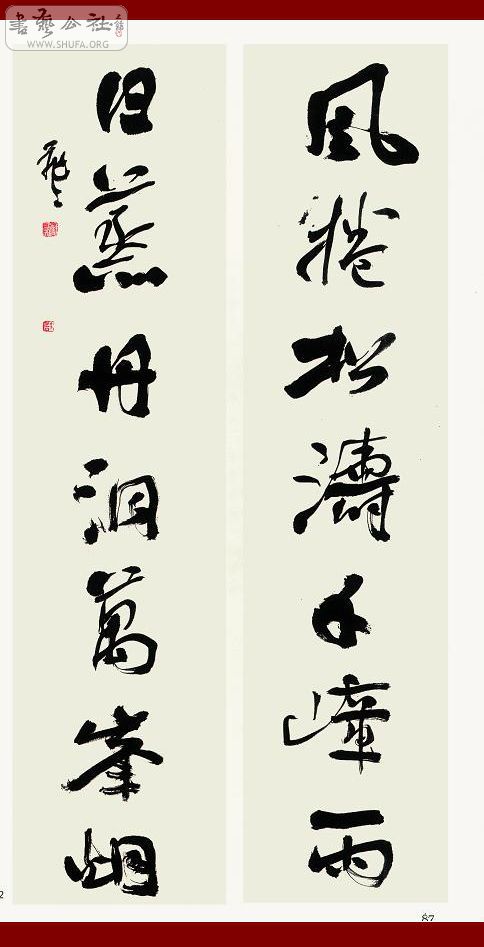 書藝公社
WWW.SHUFA.ORG
風捲松濤千嶂雨
日蒸丹洞萬峯烟
87
2